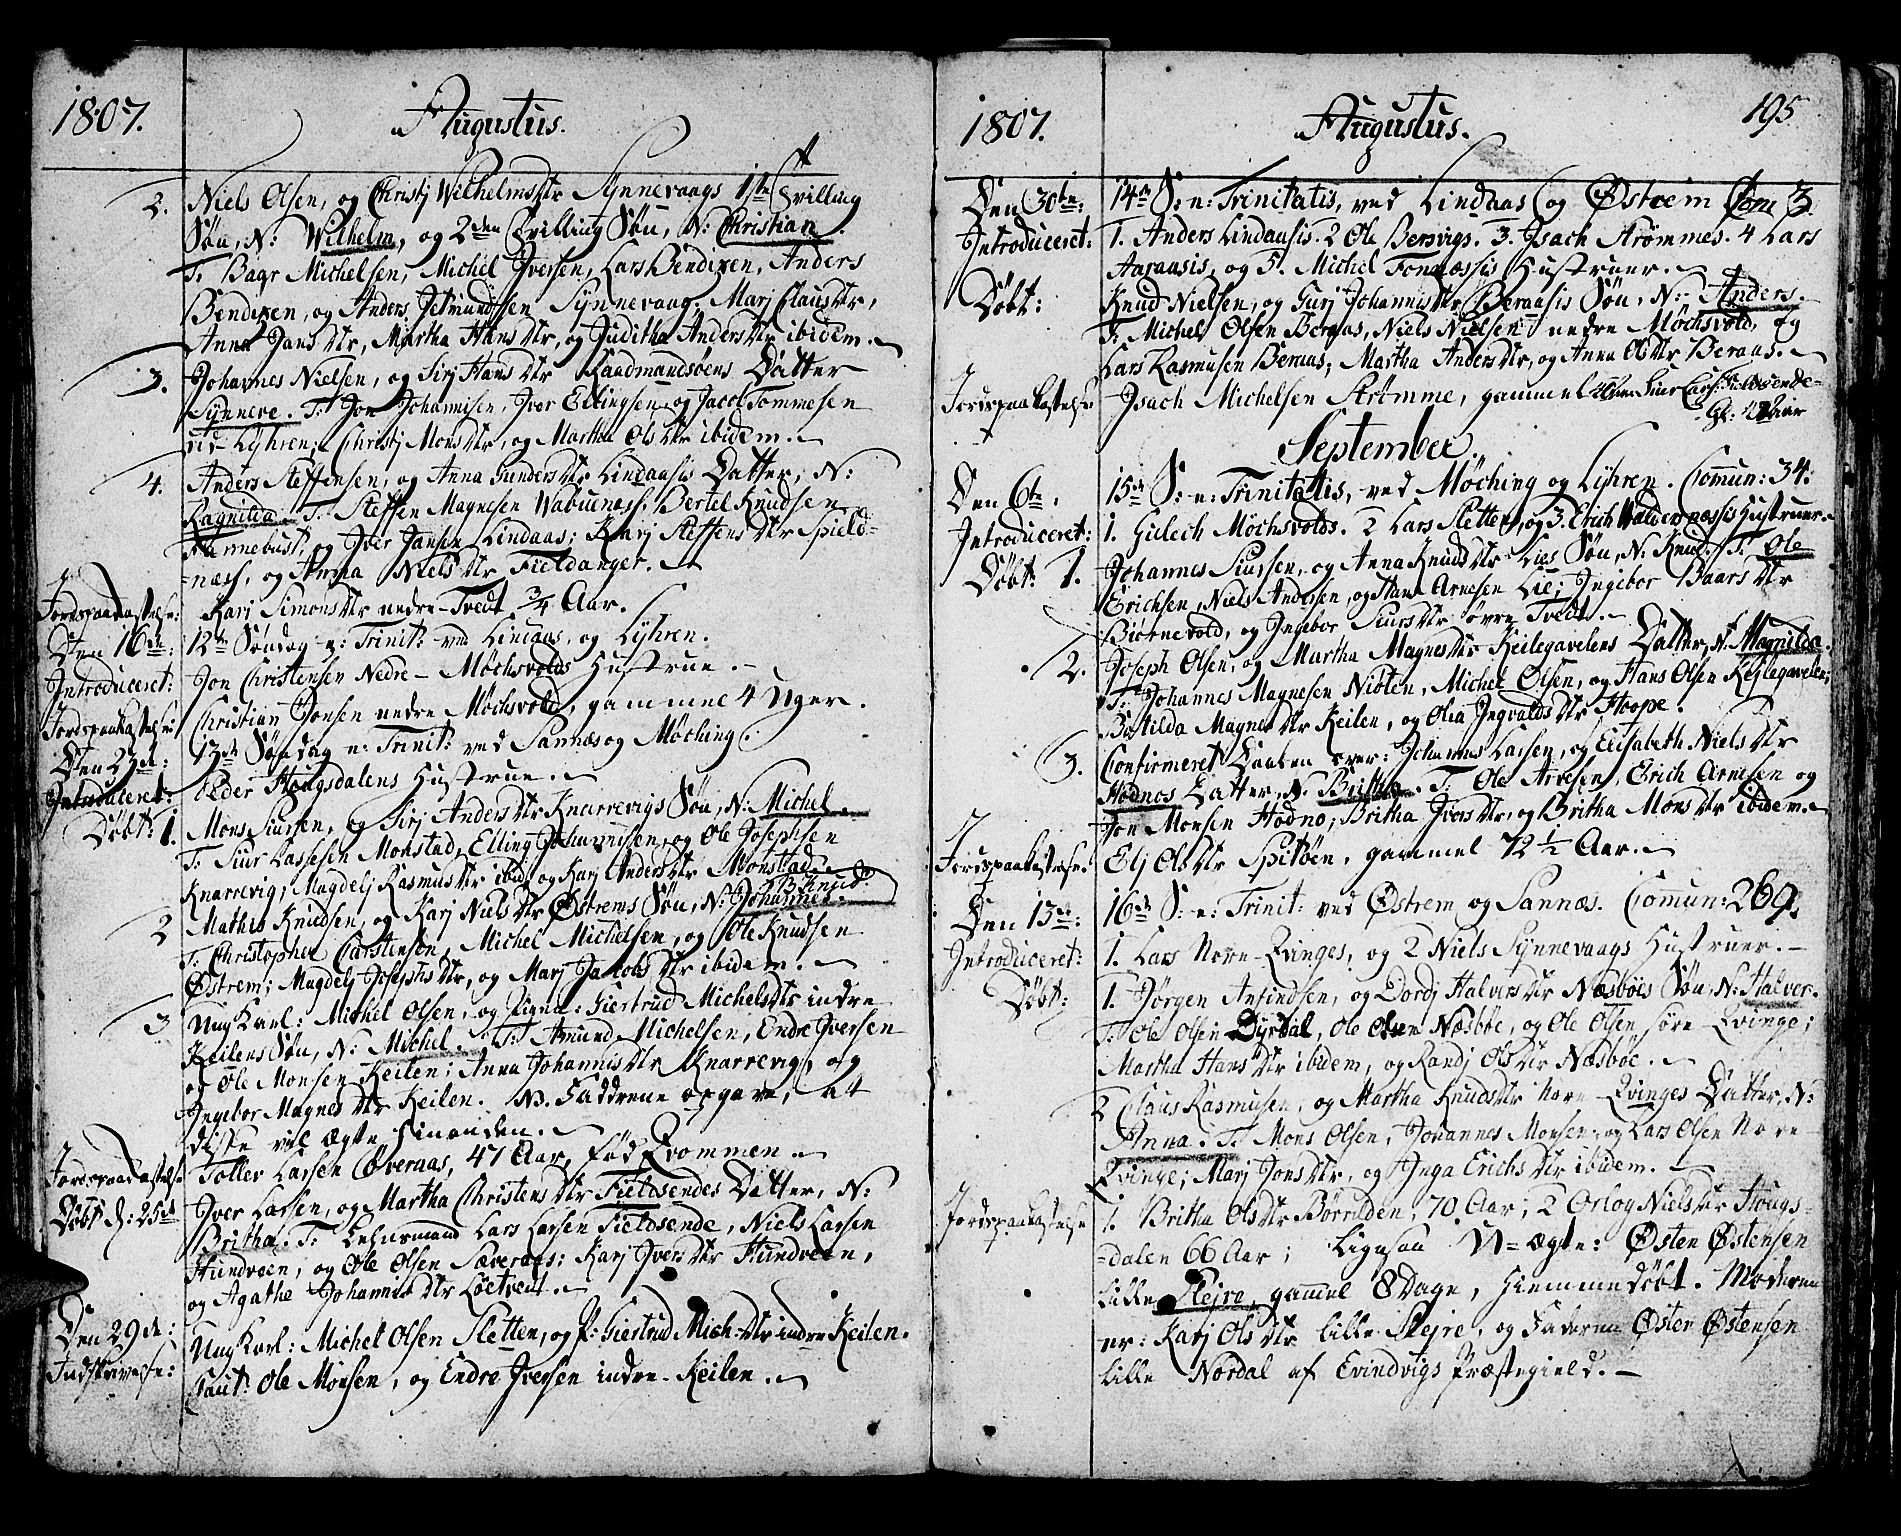 1807. Augustus.
2. Niels Olsen, og Christj Wilhelmsdtr Synnevaags 1ste Tvilling
Søn, N: Wilhelm, og 2den Tvilling Søn, N: Christian.
T: Baar Michelsen, Michel Iversen, Lars Bendixen, Anders
Bendixen, og Anders Jetmundsen Synnevaag. Marj Clausdtr,
Anna Jansdtr, Martha Hansdtr, og Juditha Andersdtr ibidem.
3. Johannes Nielsen, og Sirj Hansdtr Raadmandsøens Datter
Synneve. T: Jon Johannisen, Iver Ellingsen og Jacob Tommesen
Lyhren; Christj Monsdtr, og Martha Olsdtr ibidem.
4. Anders Steffensen, og Anna Gundersdtr Lindaasis Datter, N:
Ragnilda. T: Steffen Magnesen Wabueness, Bertel Knudsen
Fannebust, og Iver Jansen Lindaas; Karj Steffensdtr Spield-
=næss, og Anna Nielsdtr Fieldanger.
Jordspaakastelse: Karj Simonsdtr nedre-Tvedt 3/4 Aar.
Den 16de: 12te Søndag n: Trinit: ved Lindaas, og Lyhren.
Introduceret: Jon Christensen Nedre-Møchsvolds Hustrue.
Jordspaakastelse: Christian Jonsen nedre Møchsvold, gammel 4 Uger.
Den 23de: 13de Søndag n: Trinit: ved Sannæs og Møching.
Introduceret: Peder Hougsdalens Hustrue.
Døbt: 1. Mons Siursen, og Sirj Andersdtr Knarrevigs Søn, N: Michel.
T: Siur Lassesen Monstad, Elling Johannisen, og Ole Josephsen
Knarrevig; Magdelj Rasmusdtr ibid, og Karj Andersdtr Monstad.
B. Knud.
2 Mathis Knudsen, og Karj Nielsdtr Østrems Søn, N: Johannes.
T: Christopher Carstensen, Michel Michelsen, og Ole Knudsen
Østrem; Magdelj Josephsdtr, og Marj Jacobsdtr ibidem.
3 Ung Karl: Michel Olsen, og Pigen: Giertrud Michelsdtr indre
Keilens Søn, N: Michel. T: Amund Michelsen, Endre Iversen
og Ole Monsen Keilen; Anna Johannisdtr Knarrevig, og
Ingebor Magnesdtr Keilen. NB. Faddrene opgave, at
disse vil ægte hinanden.
Jordspaakastelse Toller Larsen Øveraas, 47 Aar, fød Qvommen.
Døbt d: 25de Iver Larsen, og Martha Christensdtr Fieldsendes Datter, N:
Britha. T: Lehnsmand Lars Larsen Fieldsende, Niels Larsen
Hundveen, og Ole Olsen Sæveraas; Karj Iversdtr Hundveen,
og Agathe Johannisdtr Løtveit.
Den 29de: Ung Karl: Michel Olsen Sletten, og P: Giertrud Mich-dtr indre Keilen.
Indskrivelse: Caut: Ole Monsen, og Endre Iversen indre-Keilen.
1807. Augustus. 195
Den 30te: 14de S: n: Trinitatis, ved Lindaas og Østrem Com 3.
Introduceret: 1. Anders Lindaasis. 2 Ole Bersvigs. 3. Isach Strømmes. 4 Lars
Aaraasis, og 5. Michel Fonnæssis Hustruer.
Døbt: Knud Nielsen, og Gurj Johannisdtr Beraasis Søn, N: Anders.
T: Michel Olsen Beraas, Niels Nielsen nedre Møchsvold, og
Lars Rasmusen Beraas; Martha Andersdtr, og Anna Olsdtr Beraas.
Jordspaakastelse Isach Michelsen Strømme, gammel
Gl: 42 Aar
September.
Den 6te: 15de S: n: Trinitatis, ved Møching og Lyhren. Commun: 34.
Introduceret: 1. Gulech Møchsvolds. 2 Lars Slettens, og 3. Erich Waldernæssis Hustruer.
Døbt: 1. Johannes Siursen, og Anna Knudsdtr Lies Søn, N: Knud. T: Ole
Erichsen, Niels Andersen, og Hans Arnesen Lie; Ingebor Baarsdtr
Biørnevold, og Ingebor Siursdtr øvre Tvedt.
2. Joseph Olsen, og Martha Magnesdtr Keilegavelens Datter, N: Magnilda.
T: Johannes Magnesen Nioten, Michel Olsen, og Hans Olsen Kejlegavelen;
Botilda Magnesdtr Keilen, og Olia Ingvaldsdtr Hoope.
3. Confirmeret Daaben over: Johannes Larsen, og Elisabeth Nielsdtr
Hodnos Datter, N: Britha. T: Ole Arnesen, Erich Arnesen og
Jon Monsen Hodno; Britha Iversdtr, og Britha Monsdtr ibidem.
Jordspaakastelse. Elj Olsdtr Spitøen, gammel 72 1/2 Aar.
Den 13de: 16de S: n: Trinit: ved Østrem og Sannæs. Commun: 269.
Introduceret: 1. Lars Nore-Qvinges, og 2 Niels Synnevaags Hustruer.
Døbt: 1. Jørgen Anfindsen, og Dordj Halversdtr Næsbøes Søn, N: Halver.
T: Ole Olsen Dyrdal, Ole Olsen Næsbøe, og Ole Olsen søre Qvinge;
Martha Hansdtr ibidem, og Randj Olsdtr Næsbøe.
2 Claus Rasmusen, og Martha Knudsdtr Nore-Qvinges Datter, N:
Anna. T: Mons Olsen, Johannes Monsen, og Lars Olsen Nore-
Qvinge; Marj Jonsdtr, og Inga Erichsdtr ibidem.
Jordspaakastelse 1. Britha Olsdtr Børrilden, 70 Aar; 2 Orlog Nielsdtr Hougs-
=dalen 66 Aar; Ligesaa U-ægte: Østen Østensen
Lille Slejre, gamel 8 Dage, Hiemmedøbt. Moderen
er: Karj Olsdtr Lille Slejre, og Faderen Østen Østensen
Lille Nordal af Evindvigs Præstegield.